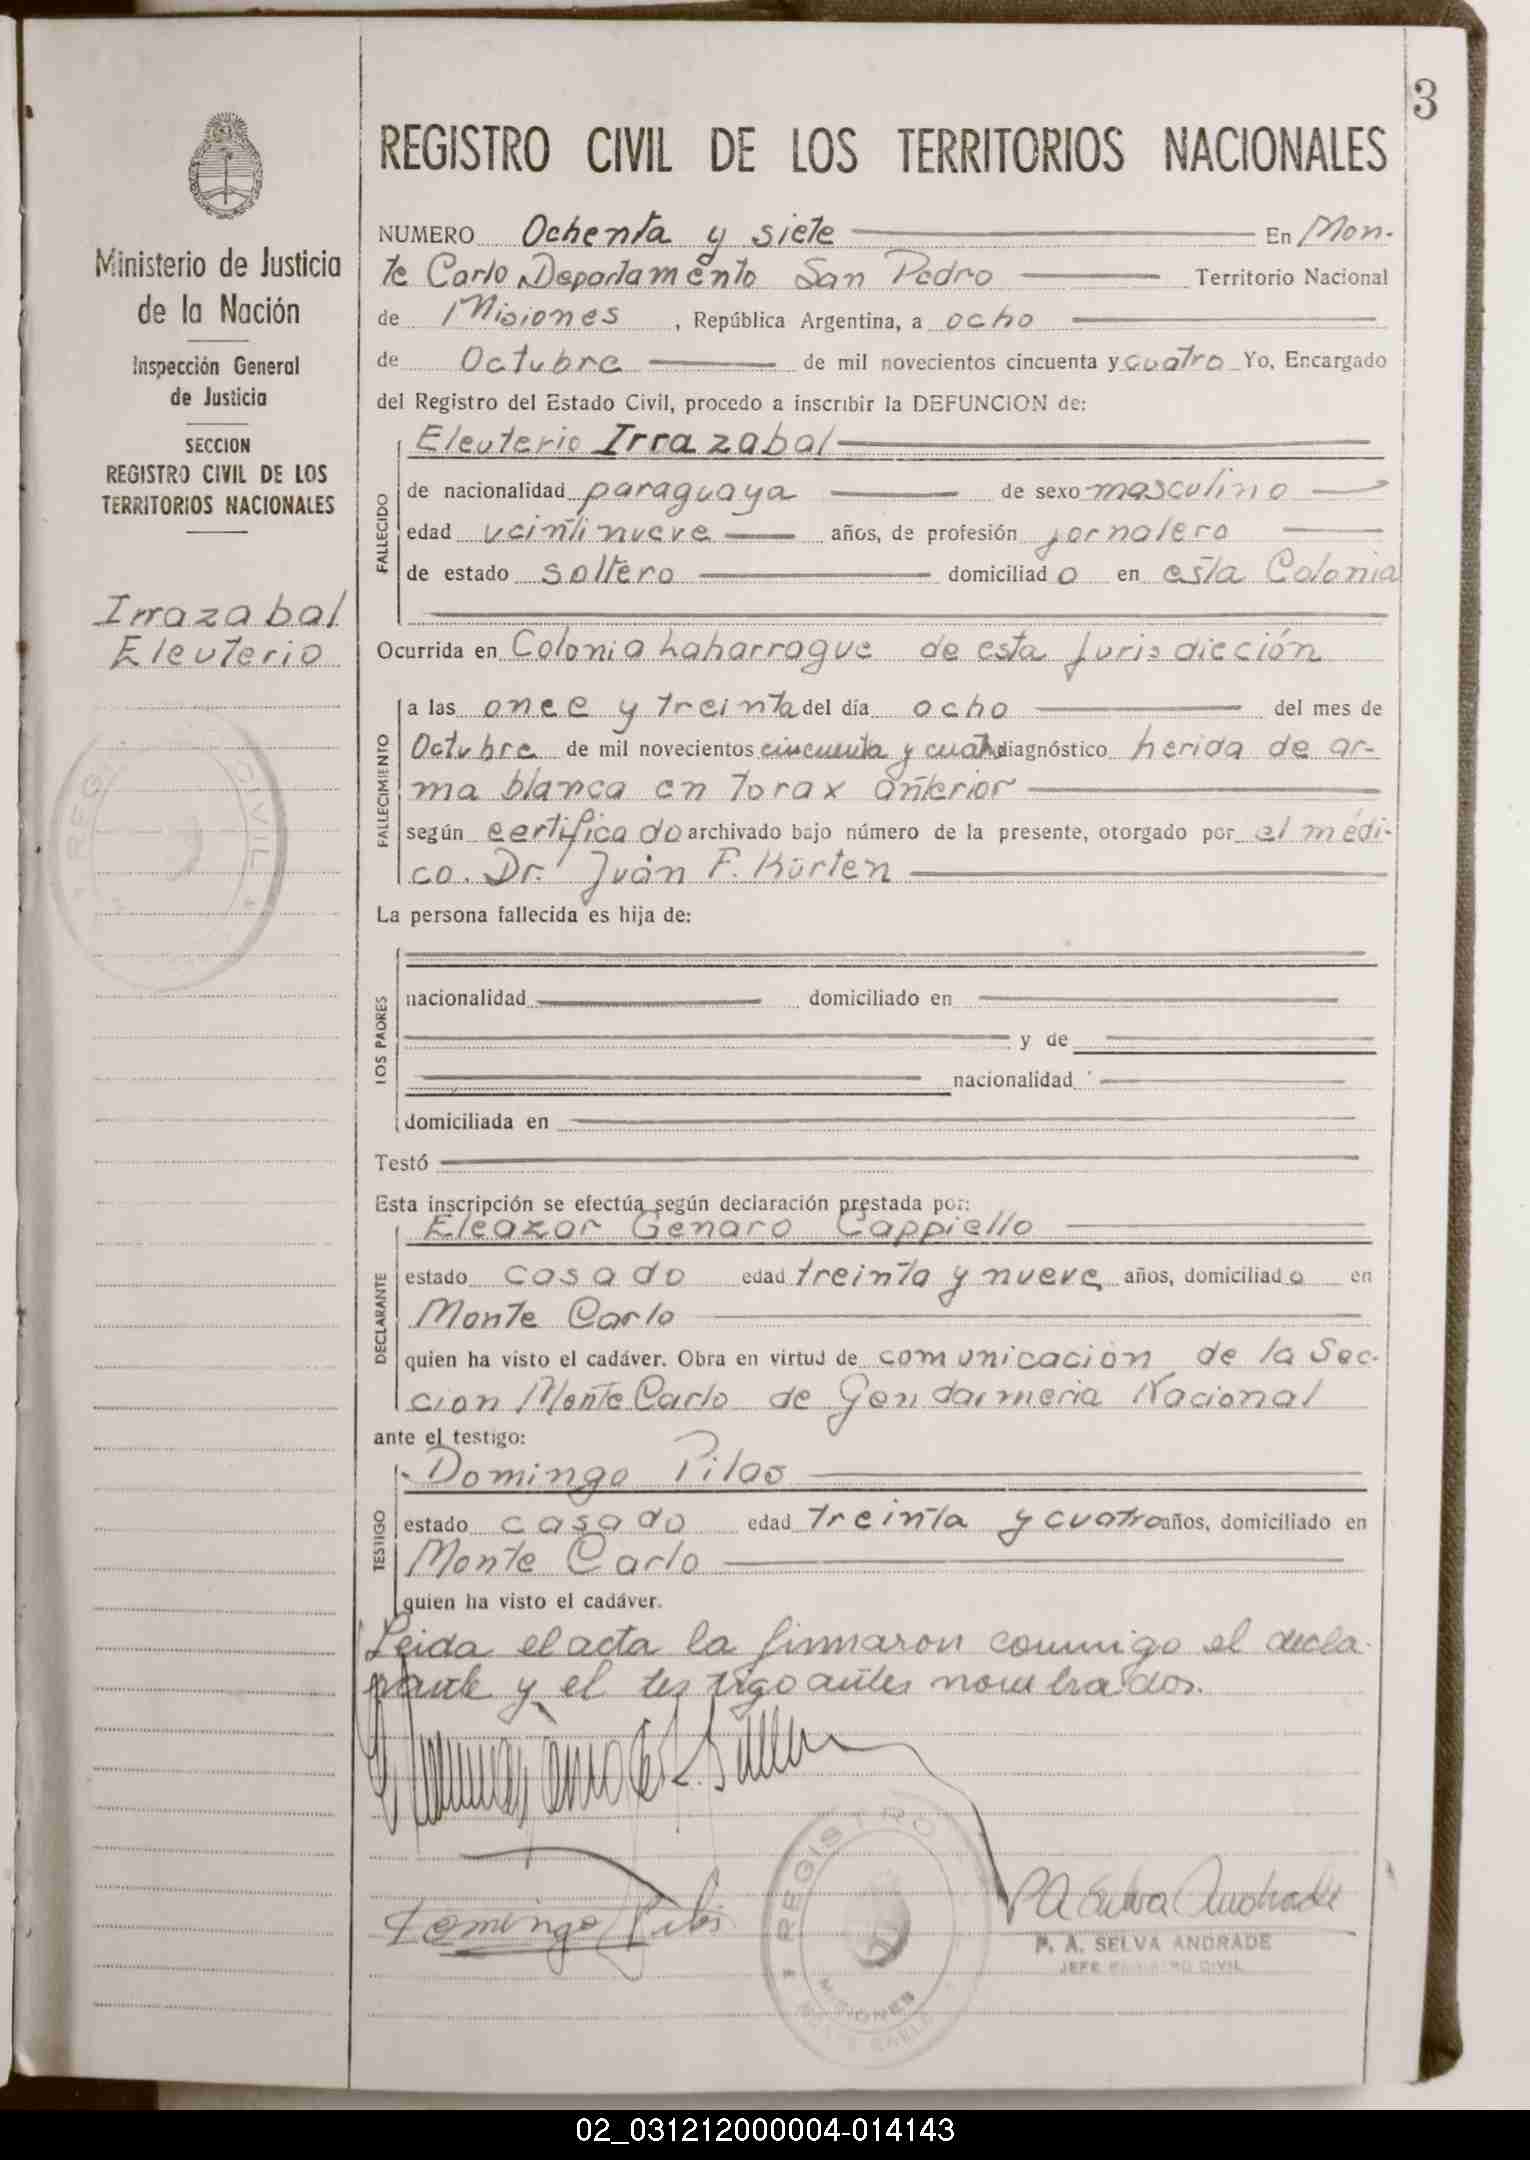 3
REGISTRO CIVIL DE LOS TERRITORIOS NACIONALES
Ministerio de Justicia
de la Nación
Inspección General
de Justicia
SECCION
REGISTRO CIVIL DE LOS
TERRITORIOS NACIONALES
Irrazabal
Eleuterio
REGI CIVIL
NUMERO Ochenta y siete En Mon-
te Carlo Departamento San Pedro Territorio Nacional
de Misiones, República Argentina, a ocho
de Octubre de mil novecientos cincuenta y cuatro Yo, Encargado
del Registro del Estado Civil, procedo a inscribir la DEFUNCION de:
FALLECIDO
Eleuterio Irrazabal
de nacionalidad paraguaya de sexo masculino
edad veintinueve años, de profesión jornalero
de estado soltero domiciliado en esta Colonia
Ocurrida en Colonia Laharrague de esta Jurisdicción
FALLECIMIENTO
a las once y treinta del día ocho del mes de
Octubre de mil novecientos cincuenta y cuatro diagnóstico herida de ar-
ma blanca en torax anterior
según certificado archivado bajo número de la presente, otorgado por el médi-
co. Dr. Juan F. Kürten
La persona fallecida es hija de:
LOS PADRES
nacionalidad domiciliado en
y de
nacionalidad
domiciliada en
Testó
Esta inscripción se efectúa según declaración prestada por:
DECLARANTE
Eleazar Genaro Cappiello
estado casado edad treinta y nueve años, domiciliado en
Monte Carlo
quien ha visto el cadáver. Obra en virtud de comunicación de la Sec-
cion Monte Carlo de Gendarmeria Nacional
ante el testigo:
TESTIGO
Domingo Pilas
estado casado edad treinta y cuatro años, domiciliado en
Monte Carlo
quien ha visto el cadáver.
Leida el acta la firmaron conmigo el decla-
rante y el testigo antes nombrados.
Domingo
REGISTRO
MISIONES
P A Selva Andrade
P. A. SELVA ANDRADE
JEFE REGISTRO CIVIL
02_031212000004-014143